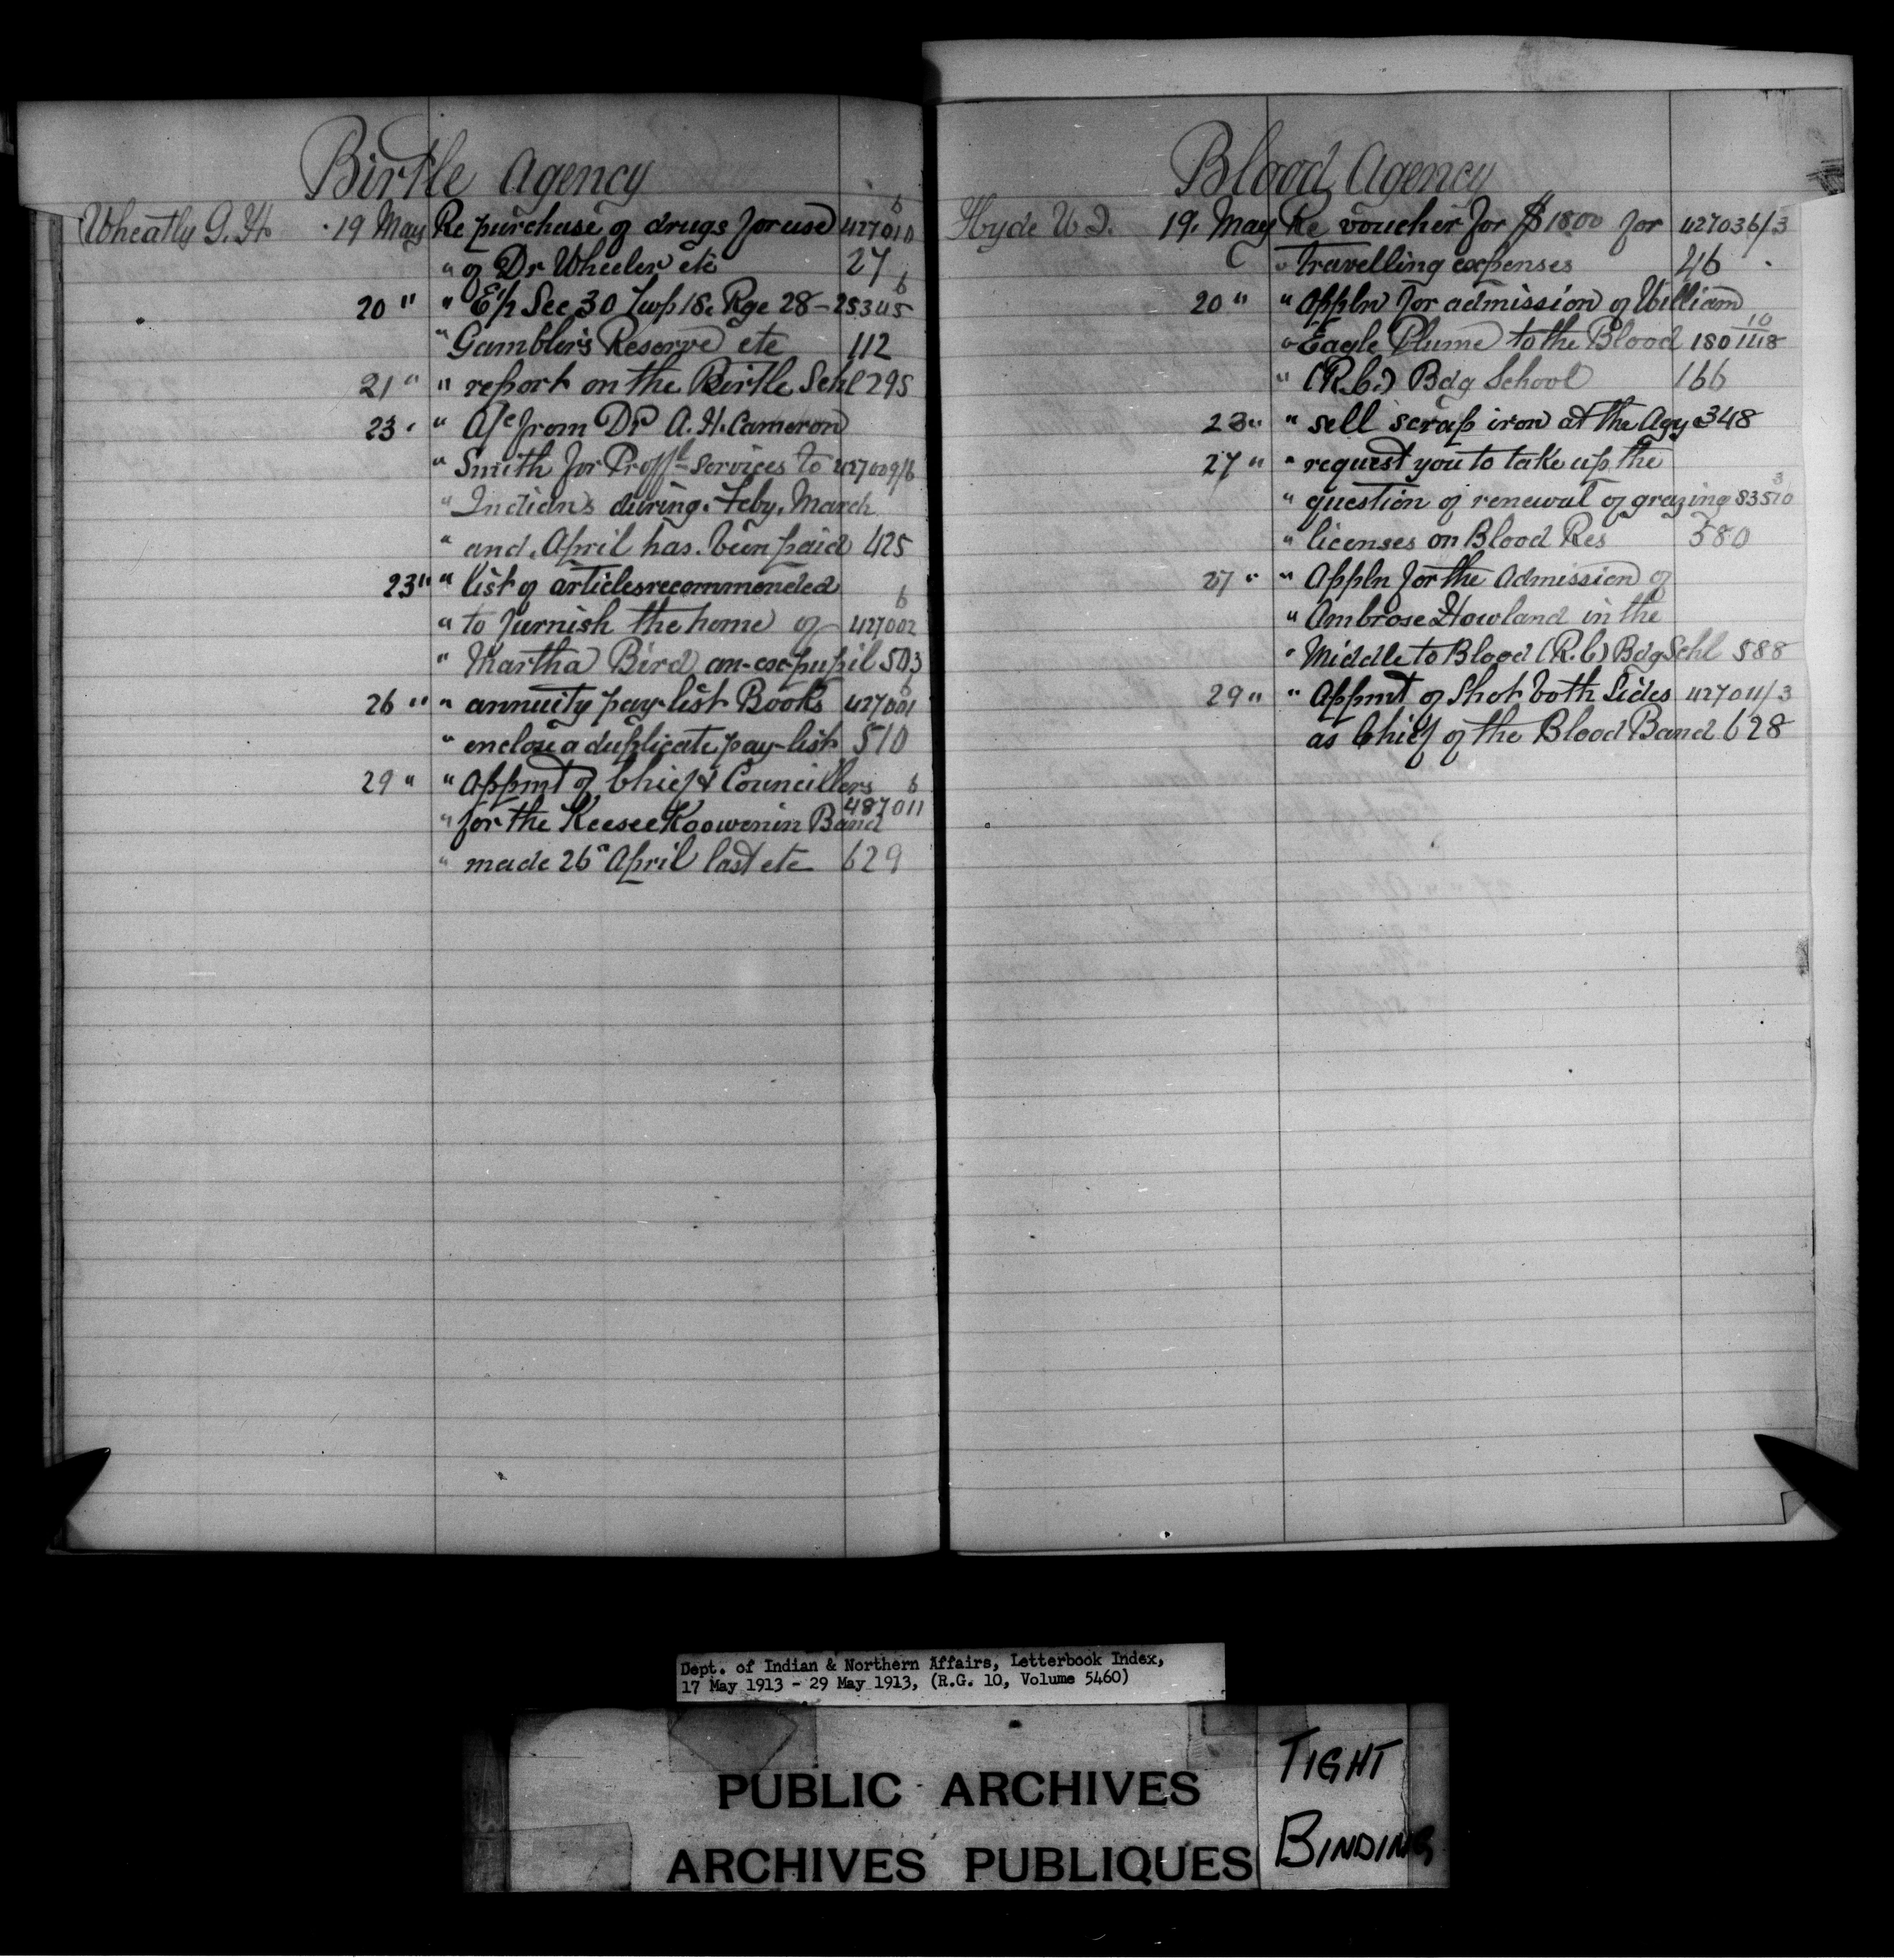 Birtle Agency
Wheatly G. H. 19 May Re purchase of drugs for use 427010 6
" of Dr Wheeler etc 27
20 " " E½ Sec 30 Twp 18. Rge 28 - 25345 6
" Gamblers Reserve etc 112
21 " " report on the Birtle Schl 295
23 " " A/c from Dr A. H. Cameron
" Smith for Proffl Services to 427009/6
" Indians during Feby, March
" and April has been paid 425
23 " " list of articles recommended
" to furnish the home of 427002 6
" Martha Bird an ex-pupil 503
26 " " annuity pay-list Books 427001 6
" enclose a duplicate pay-list 510
29 " " Appmt of Chief & Councillors 6
" for the Keeseekoowenin Band 487011
" made 26" April last etc 629
Blood Agency
Hyde W. J. 19. May Re voucher for $1800 for 427036/3
" travelling expenses 46
20 " " Appln for admission of William
" Eagle Plume to the Blood 180 1118 10
" (R.C.) Bdg School 166
23 " " sell scrap iron at the Agy 348
27 " " request you to take up the
" question of renewal of grazing 83510 3
" licenses on Blood Res 580
27 " " Appln for the Admission of
" Ambrose Howland in the
" Middle to Blood (R.C) Bdg Schl 588
29 " " Appmt of Shot both Sides 427011/3
as Chief of the Blood Band 628
Dept. of Indian & Northern Affairs, Letterbook Index,
17 May 1913 - 29 May 1913, (R.G. 10, Volume 5460)
PUBLIC ARCHIVES
ARCHIVES PUBLIQUES
TIGHT
BINDING